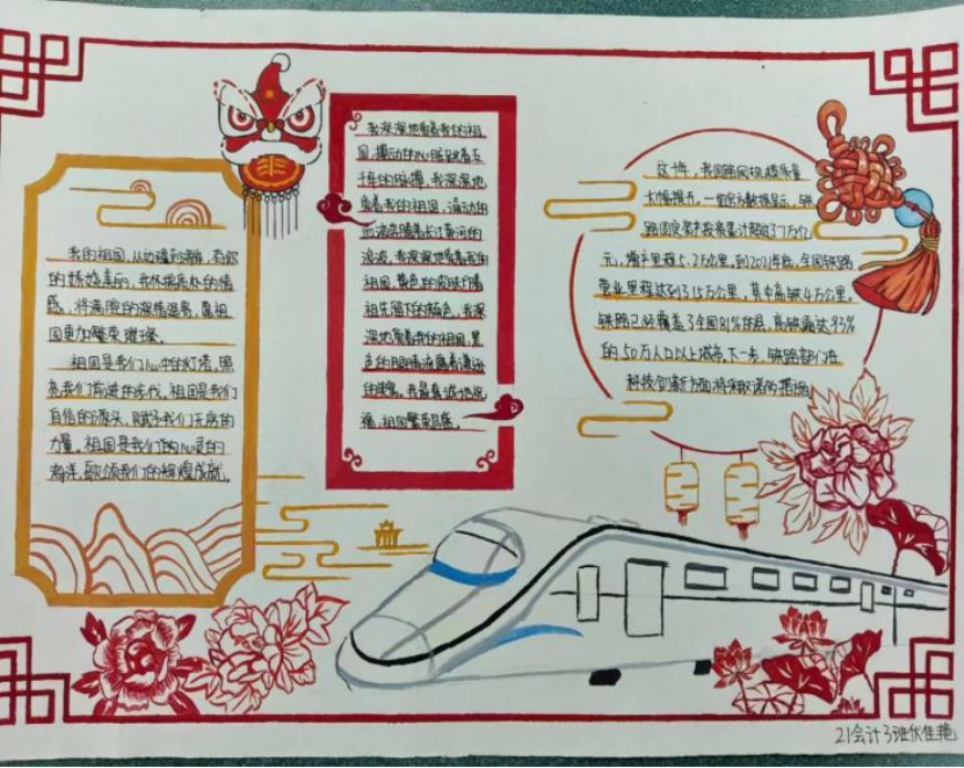 我的祖国,从边疆到海角,有你
的娇娆美丽。我怀揣
感,将满腔的深情溢界,愿祖
国更加繁荣璀璨。
祖国是我们心中的灯塔,照
亮我们前进的步伐。祖国是我们
自信的源头,赋予我们无穷的
力量。祖国是我们的心灵的
海洋,歌颂我们的辉煌成就。
我深深地爱着我的祖
国,搏动的心脏
千年的脉搏,我深深地
爱着我的祖国,涌动的
血液 着长江黄河的
浪波,我深深地爱着我的
祖国,黄色的皮肤
祖先留下的颜色,我深
深地爱着我的祖国,黑
色的眼睛流露着
的 。我最真诚地祝
福,祖国繁荣昌盛。
这十年,我国路网规模质量
大幅提升,一组官方数据显示,铁
路固定资产投资累计超过7万亿
元,增产里程5.2万公里,到2021年底,全国铁路
营业里程达到了15万公里,其中高铁4万公里。
铁路已经覆盖了全国81%的县,高铁通达93%
的50万人口以上城市,下一步,铁路部门在
科技创新方面将采取 的措施
21会计3班伏佳艳